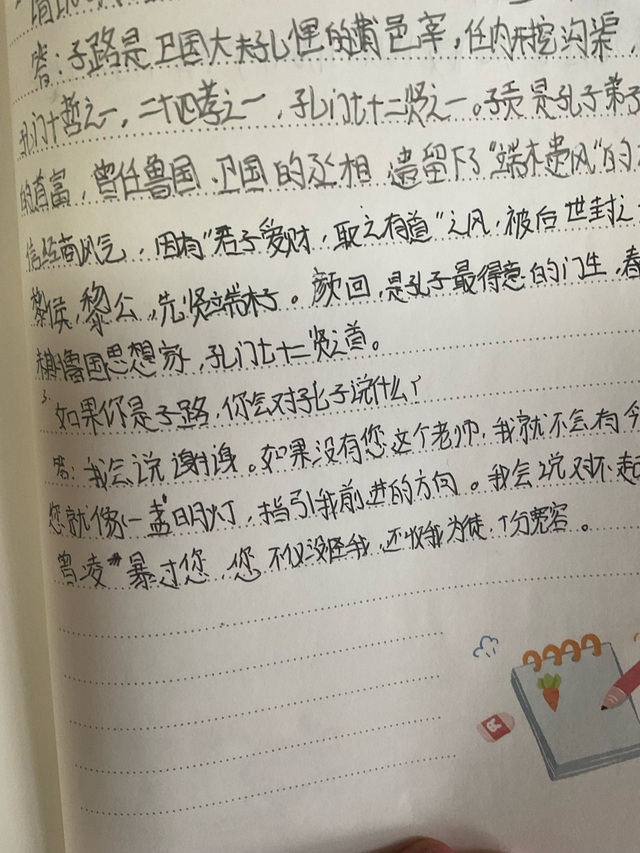 答：子路是卫国大夫孔悝的蒲邑宰，任内开挖沟渠，
孔门十哲之一，二十四孝之一，孔门七十二贤之一。子贡是孔子弟子
的首富，曾任鲁国、卫国的丞相。遗留下了“端木遗风”的
信经商风气，因有“君子爱财，取之有道”之风，被后世封之
黎侯，黎公，先贤端木子。颜回，是孔子最得意的门生，春
秋期鲁国思想家，孔门七十二贤之首。
3.如果你是子路，你会对孔子说什么？
答：我会说谢谢。如果没有您这个老师，我就不会有今
您就像一盏明灯，指引我前进的方向。我会说对不起
曾凌暴过您，您不仅没怪我，还收我为徒，十分宽容。